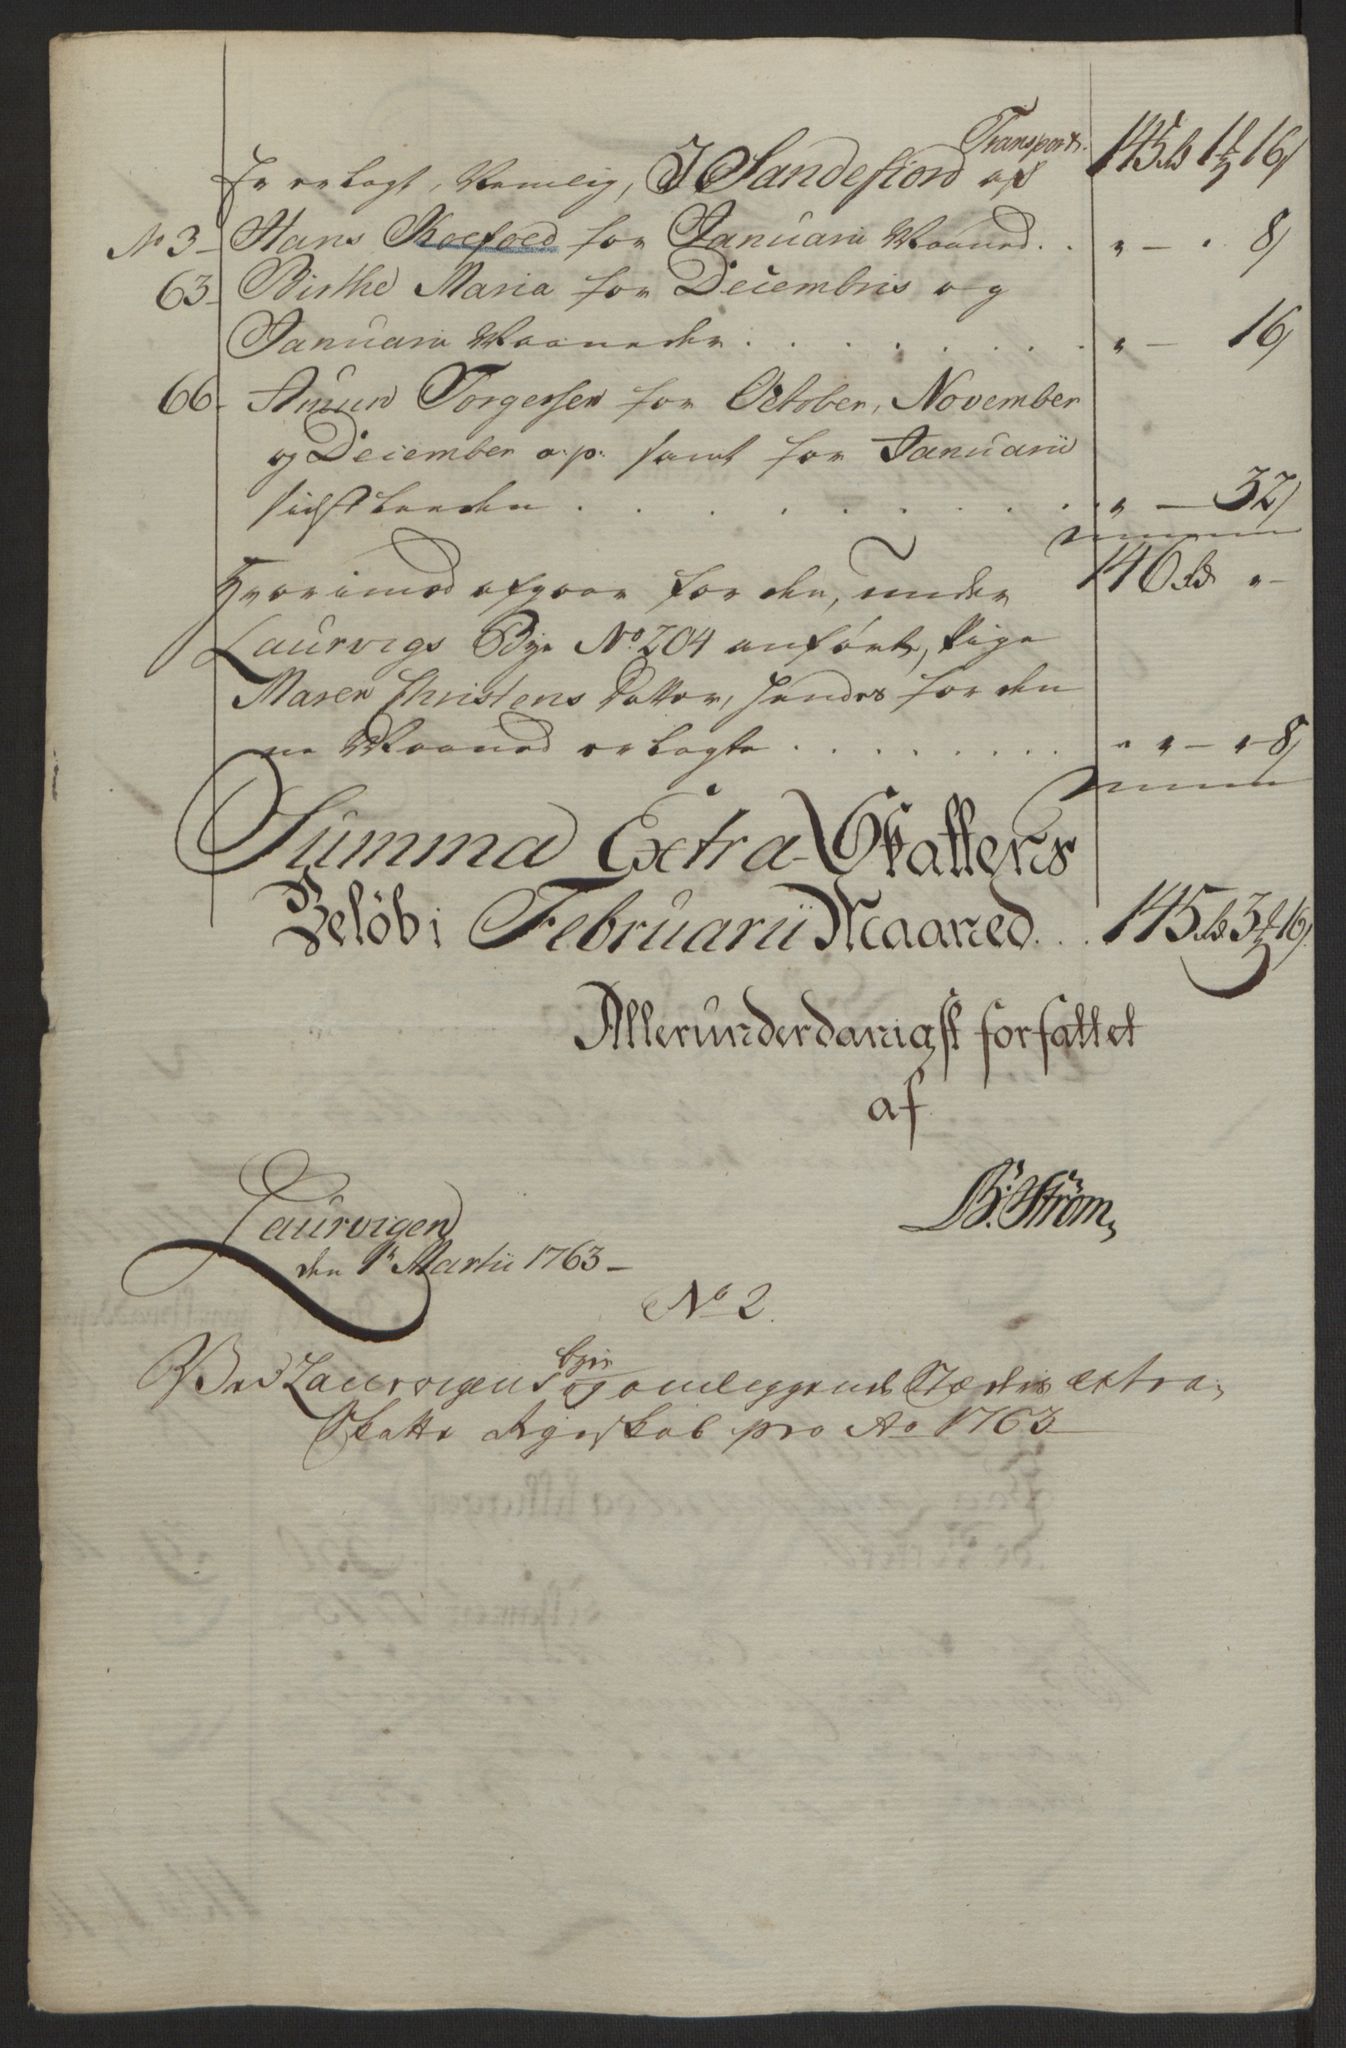 Transport. 145 rd 1 ℔ 16 s
Er erlagt, Nemlig, I Sandefiord af
No 3 Hans Koefoed for Januarii Maaned . . " — " 8
63 Birthe Maria for Decembris og
Januarii Maaneder . . . . . . . " — 16
66 Amun Torgersen for October, November
og December a. p. samt for Januarii
sidstleeden . . . . . . . " — 32
146 rd " —
Hvorimod afgaar for den, under
Laurvigs Bye No 204 anførte, Pige
Maren Christens Datter, hendes for den
ne Maaned erlagte . . . . . . . " " — " 8
Summa Extra-Skattens
Beløb i Februarii Maaned . . . 145 rd 3 ℔ 16 s
Allerunderdanigst forfattet
af
B: Strøm
Laurvigen
den 1te Martii 1763 —
No 2.
byes
Ved Laurvigens og omliggende Stæders extra
Skatte Regnskab pro Ao 1763